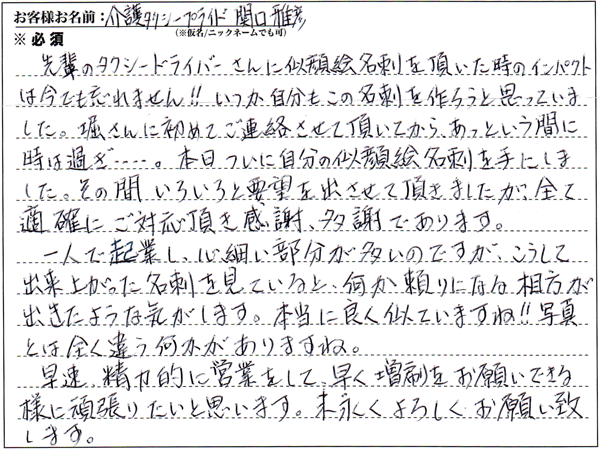 お客様お名前：介護タクシープライド 関口雅彦
※必須 （※仮名/ニックネームでも可）
先輩のタクシードライバーさんに似顔絵名刺を頂いた時のインパクト
は今でも忘れません!! いつか自分もこの名刺を作ろうと思っていま
した。堀さんに初めてご連絡させて頂いてから、あっという間に
時は過ぎ‥‥‥。本日ついに自分の似顔絵名刺を手にしま
した。その間いろいろと要望を出させて頂きましたが、全て
適確にご対応頂き感謝、多謝であります。
一人で起業し、心細い部分が多いのですが、こうして
出来上がった名刺を見ていると、何か頼りになる相方が
出きたような気がします。本当に良く似ていますね!! 写真
とは全く違う何かがありますね。
早速、精力的に営業をして、早く増刷をお願いできる
様に頑張りたいと思います。末永くよろしくお願い致
します。